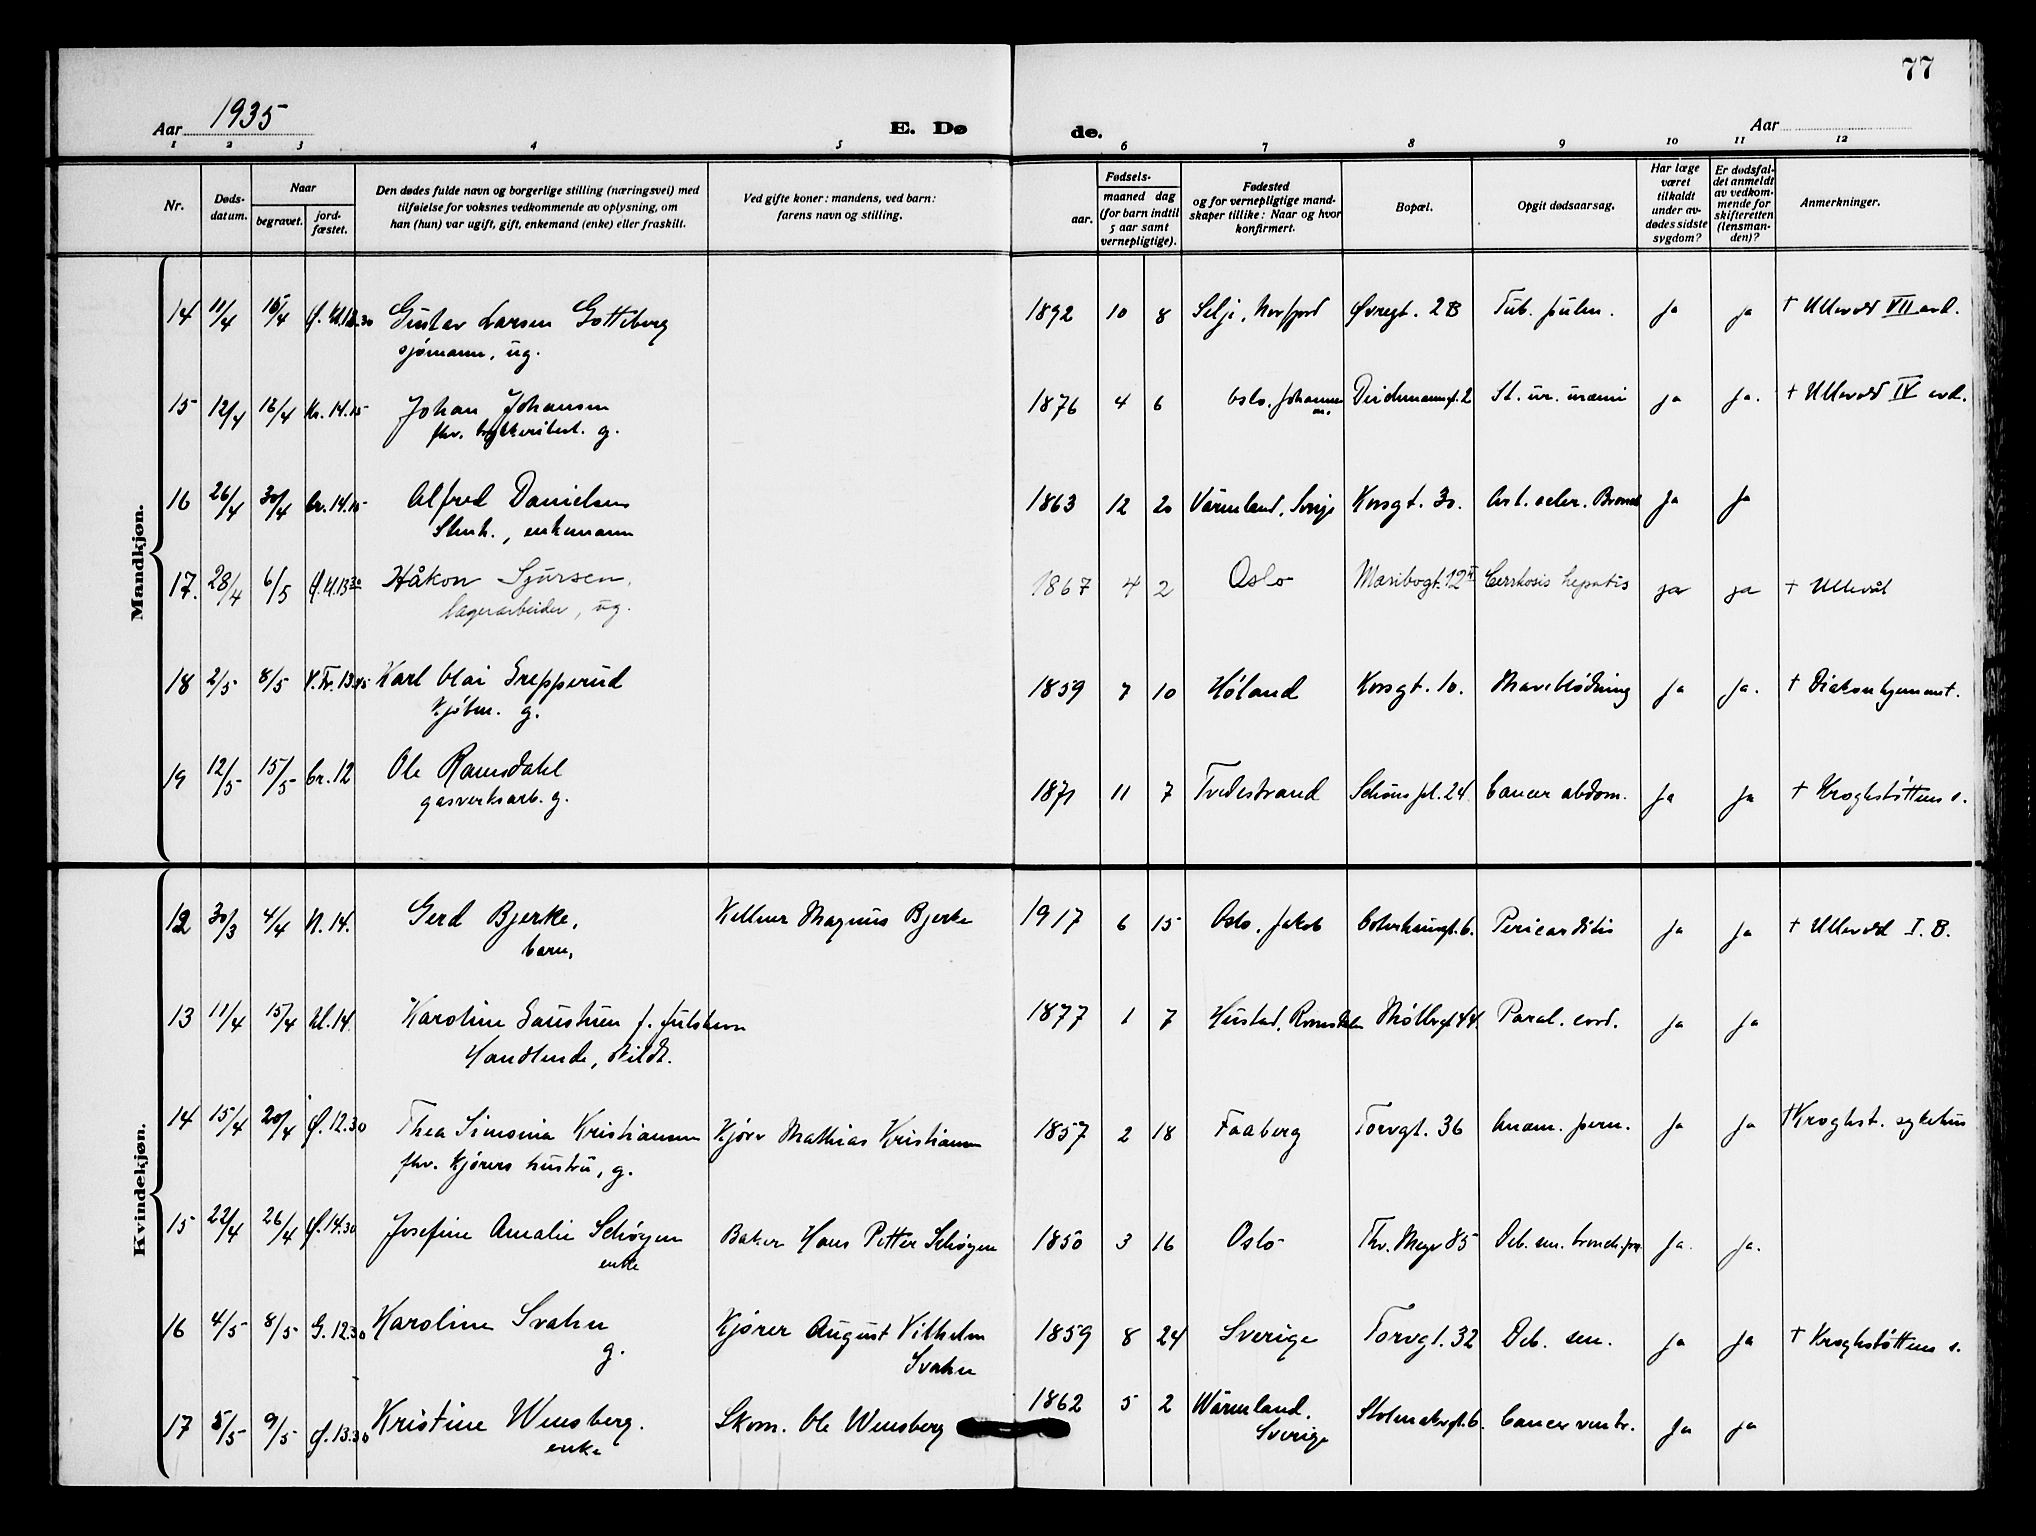 77
Aar 1935
E. Dø
de.
Aar
1 2 3 4 5 6 7 8 9 10 11 12
Nr.
Døds-
datum.
Naar
begravet.
jord-
fæstet.
Den dødes fulde navn og borgerlige stilling (næringsvei) med
tilføielse for voksnes vedkommende av oplysning, om
han (hun) var ugift, gift, enkemand (enke) eller fraskilt.
Ved gifte koner: mandens, ved barn:
farens navn og stilling.
Fødsels-
aar.
maaned dag
(for barn indtil
5 aar samt
vernepligtige).
Fødested
og for vernepligtige mand-
skaper tillike: Naar og hvor
konfirmert.
Bopæl.
Opgit dødsaarsag.
Har læge
været
tilkaldt
under av-
dødes sidste
sygdom?
Er dødsfal-
det anmeldt
av vedkom-
mende for
skifteretten
(lensman-
den)?
Anmerkninger.
Mandkjøn.
14 11/4 16/4 Gustav Larsen Gotteberg 1892 10 8 Selje, Øvregt. 2B Tub. pulm. ja ja + Ullevål VII avd.
sjømann, ug.
15 12/4 18/4 Kr. 14.15 Johan Johansen 1876 4 6 Oslo, Johannes Deichmannsgt. 2 ja ja. + Ullevål IV avd.
fhv. g.
16 26/4 30/4 Cr. 14.15 Alfred Danielsen 1863 12 20 Värmland, Sverige Korsgt. 30. Art. scler. Bronch ja ja
Stenh., enkemann
17. 28/4 6/5 13 30 Håkon Sjursen. 1867 4 2 Oslo Maribogt. 12 II Cerrhosis hepatis ja ja + Ullevål
lagerarbeider, ug.
18 2/5 8/5 V. Kr. 13.45 Karl Olai Grepperud 1859 7 10 Høland Korsgt. 10. Maveblødning ja ja. + Diakonhjemmet.
kjøbm. g.
19 12/5 15/5 Cr. 12 Ole Ramsdahl 1871 11 7 Tvedestrand Schous pl. 24 Cancer abdom. ja ja + Kroghstøttens s.
gasverksarb. g.
Kvindekjøn.
12 30/3 4/4 N. 14. Gerd Bjerke, Kelner Magnus Bjerke 1917 6 15 Oslo, Jakob Osterhausgt. 6. Pericarditis ja ja + Ullevål I. B.
barn,
13 11/4 15/4 Ul. 14. Karoline f. 1877 1 7 Hustad, Romsdalen Møllergt 44. Paral. cord. ja ja
Handlende, skildt.
14 15/4 20/4 Ø. 12.30 Thea Simonia Kristiansen Kjører Mathias Kristiansen 1857 2 18 Faaberg Torvgt. 36 Anæm. pern. ja ja + Kroghst. sykehus
fhv. kjørers hustru, g.
15 22/4 26/4 Ø. 14.30 Josefine Amalie Schøyen Baker Hans Petter Schøyen 1850 3 16 Oslo Thv. Meyer 85 Deb. sen. bronch. pn. ja. ja.
enke
16 4/5 8/5 G. 12.30 Karoline Svahn Kjører August Vilhelm 1859 8 24 Sverige Torvgt. 32 Deb. sen. ja ja + Kroghstøttens s.
g. Svahn
17 5/5 9/5 Ø. 13.30 Kristine Wensberg. Skom. Ole Wensberg 1862 5 2 Wärmland, Stolmakergt. 6. Cancer ventr. ja ja
enke Sverige